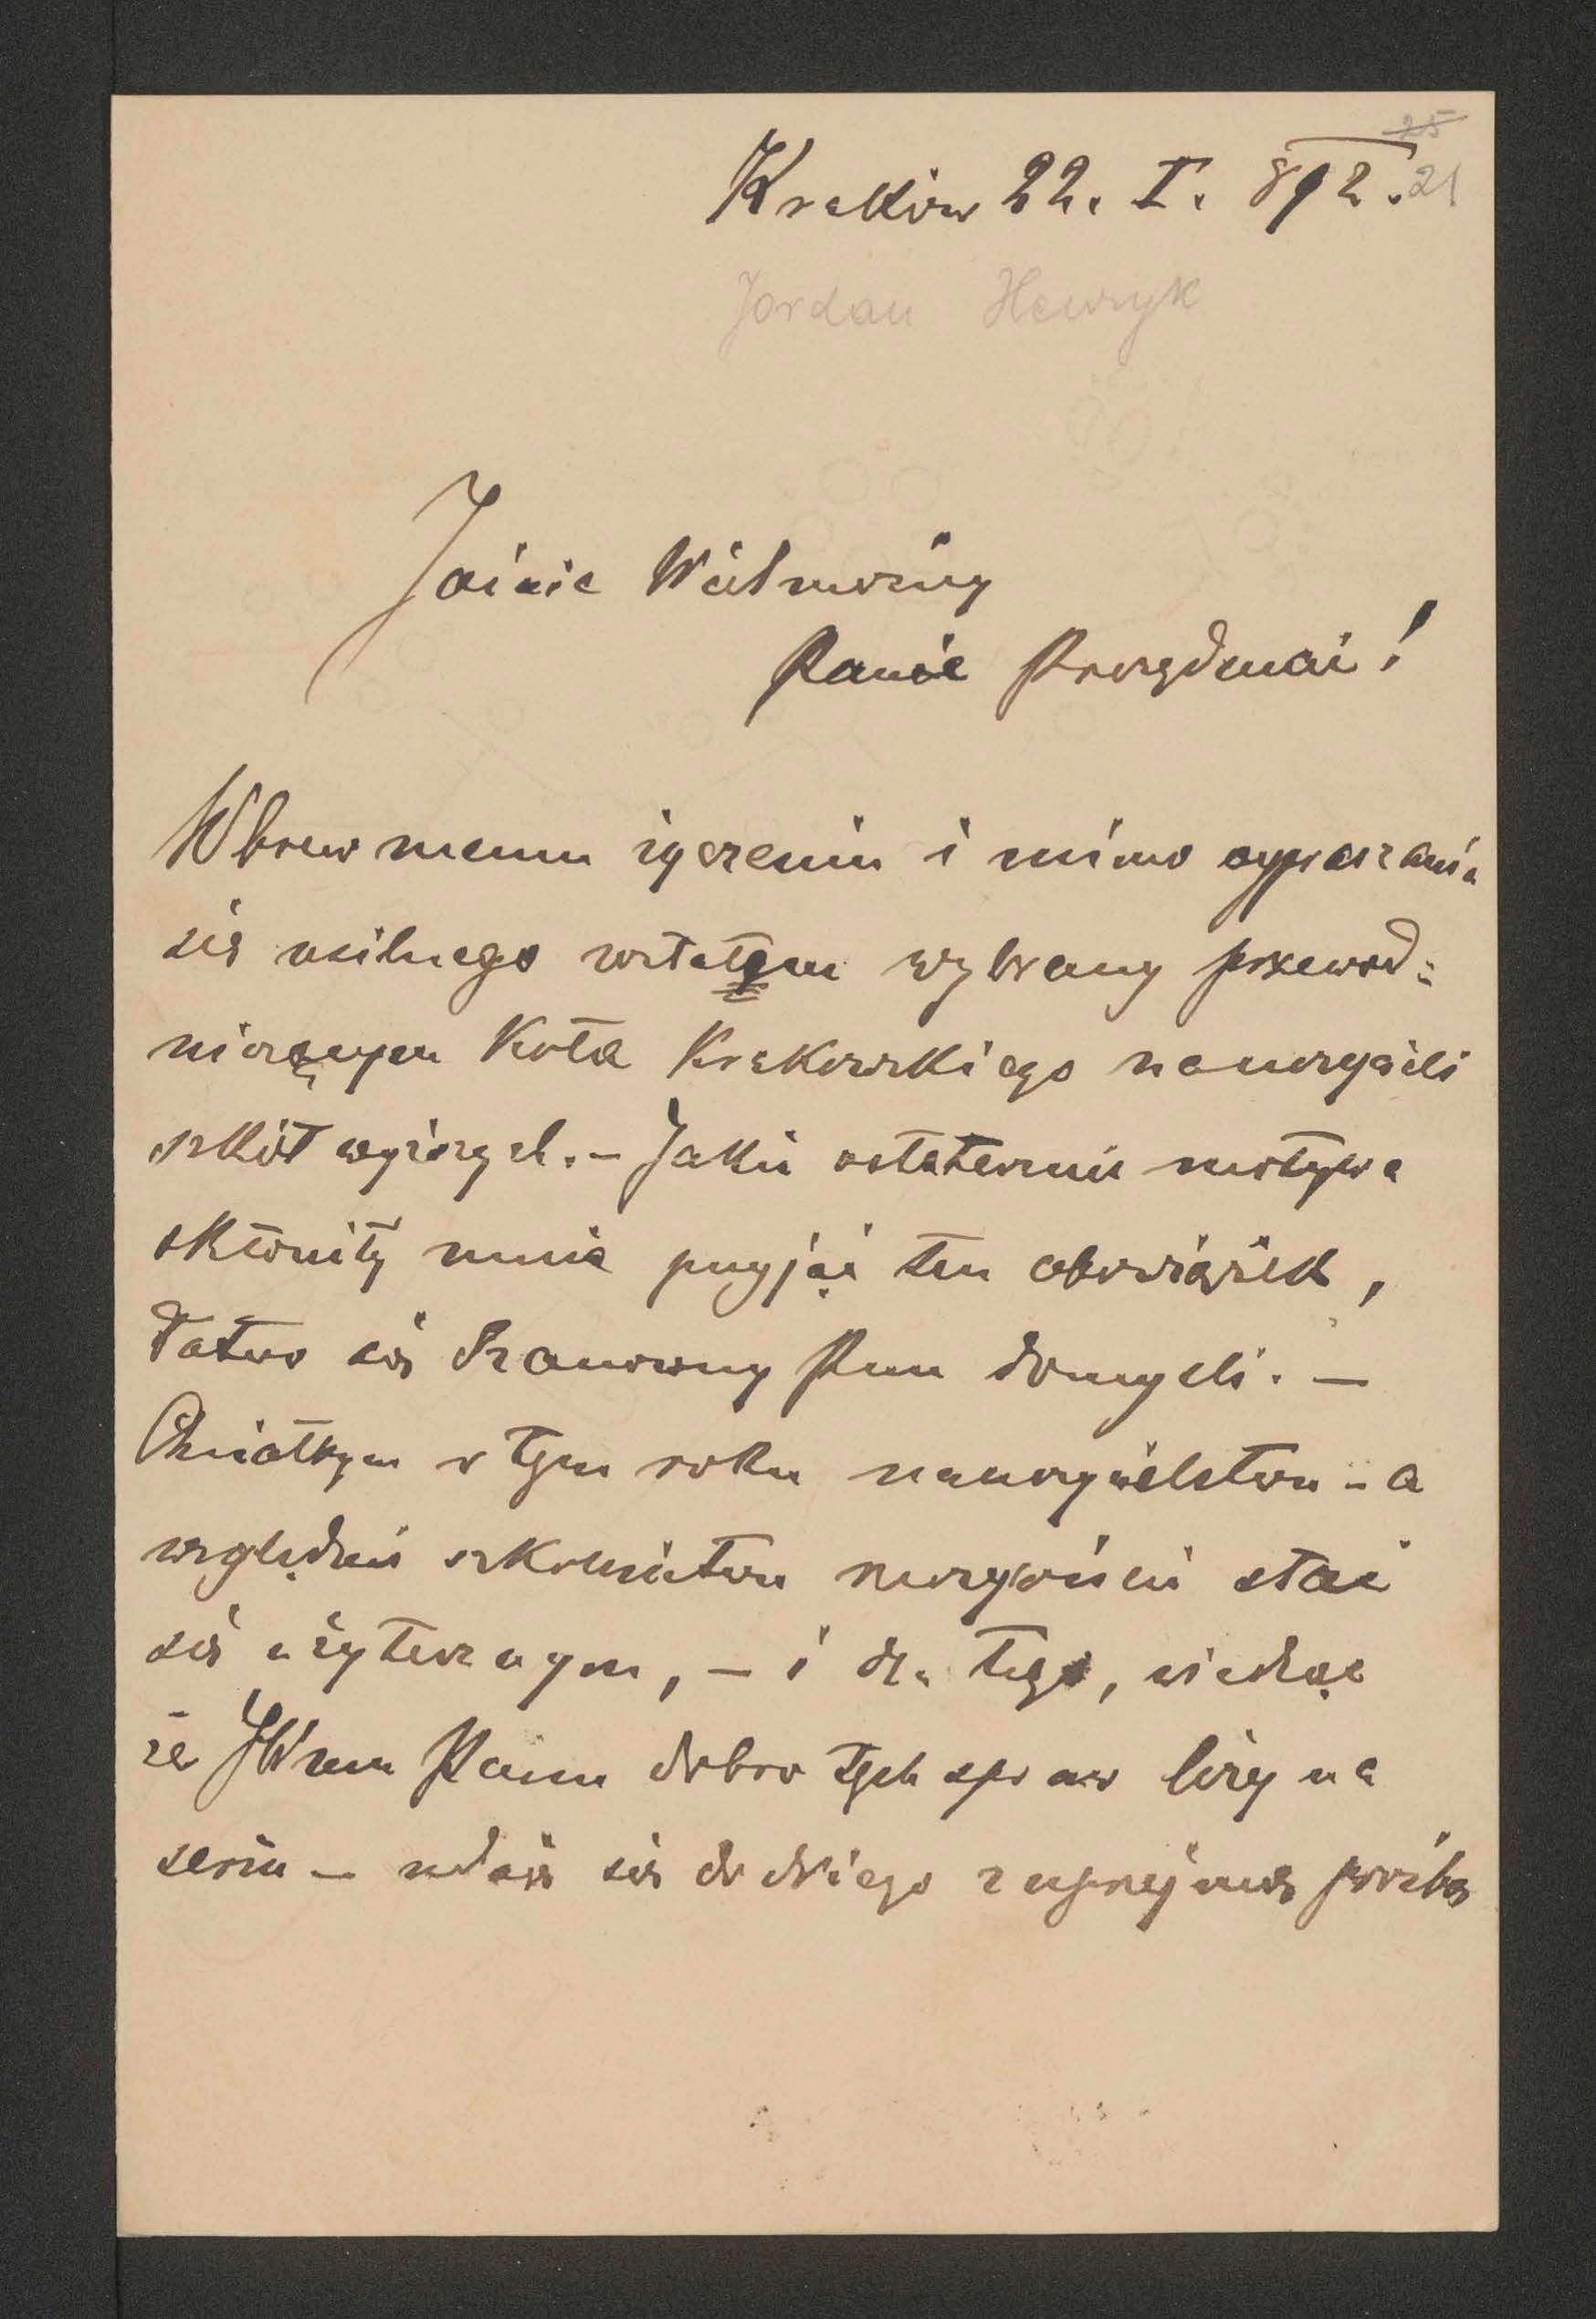 25
Kraków 22. I. 892. 21
Jordan Henryk
Jaśnie Wielmożny
Panie Prezydencie!
Wbrew memu życzeniu i mimo wypraszania
się usilnego zostałem wybrany przewod-
niczącym Koła Krakowskiego nauczycieli
szkół wyższych. – Jakie ostatecznie motywa
skłoniły mnie przyjąć ten obowiązek,
łatwo się Szanowny Pan domyśli. –
Chciałbym w tym roku nauczycielstwu – a
względnie szkolnictwu rzeczywiście stać
się użytecznym, – i dla tego, wiedząc
że JWmu Panu dobro tych spraw leży na
sercu – udaję się do Niego z uprzejmą prośbą